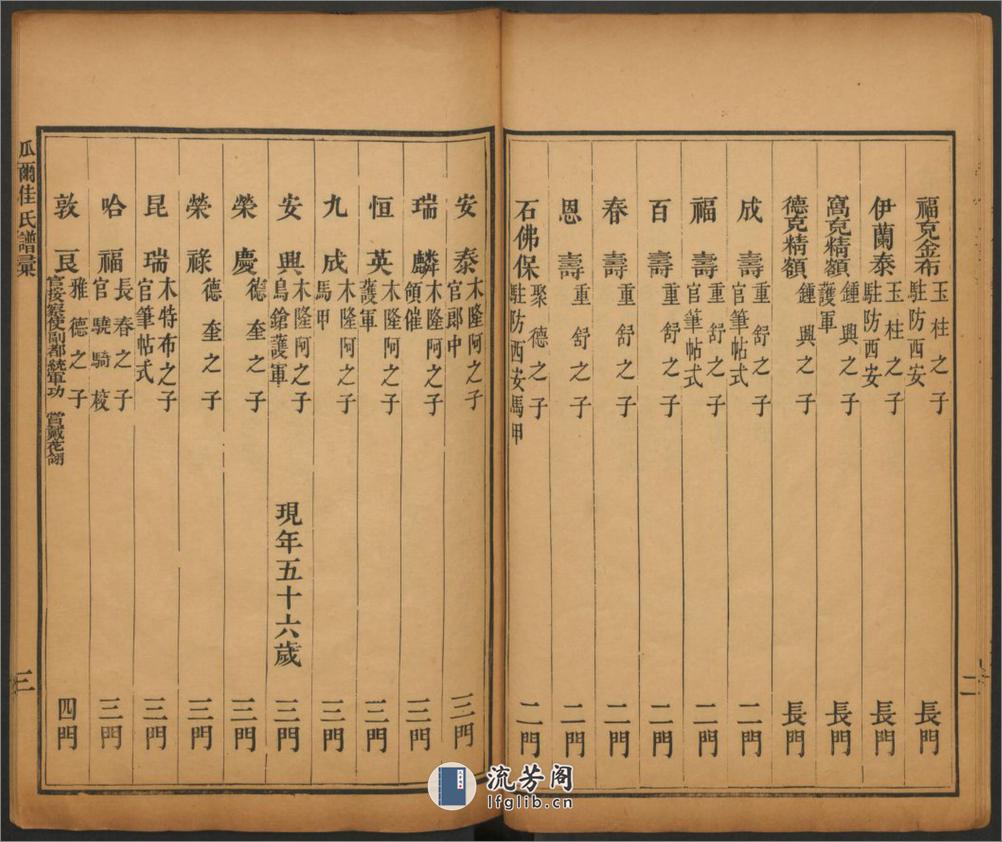 福克金布 玉柱之子 駐防西安 長門
伊蘭泰 玉柱之子 駐防西安 長門
窩克精額 鍾興之子 護軍 長門
德克精額 鍾興之子 長門
成壽 重舒之子 官筆帖式 二門
福壽 重舒之子 官筆帖式 二門
百壽 重舒之子 二門
春壽 重舒之子 二門
恩壽 重舒之子 二門
石佛保 聚德之子 駐防西安馬甲 二門
二
安泰 木隆阿之子 官郎中 三門
瑞麟 木隆阿之子 領催 三門
恒英 木隆阿之子 護軍 三門
九成 木隆阿之子 馬甲 三門
安興 木隆阿之子 鳥鎗護軍 現年五十六歲 三門
榮慶 德奎之子 三門
榮祿 德奎之子 三門
昆瑞 木特布之子 官筆帖式 三門
哈福 長春之子 官驍騎校 三門
敦良 雅德之子 官按察使副都統軍功 賞戴花翎 四門
瓜爾佳氏譜彙 三
流芳阁
lfglib.cn